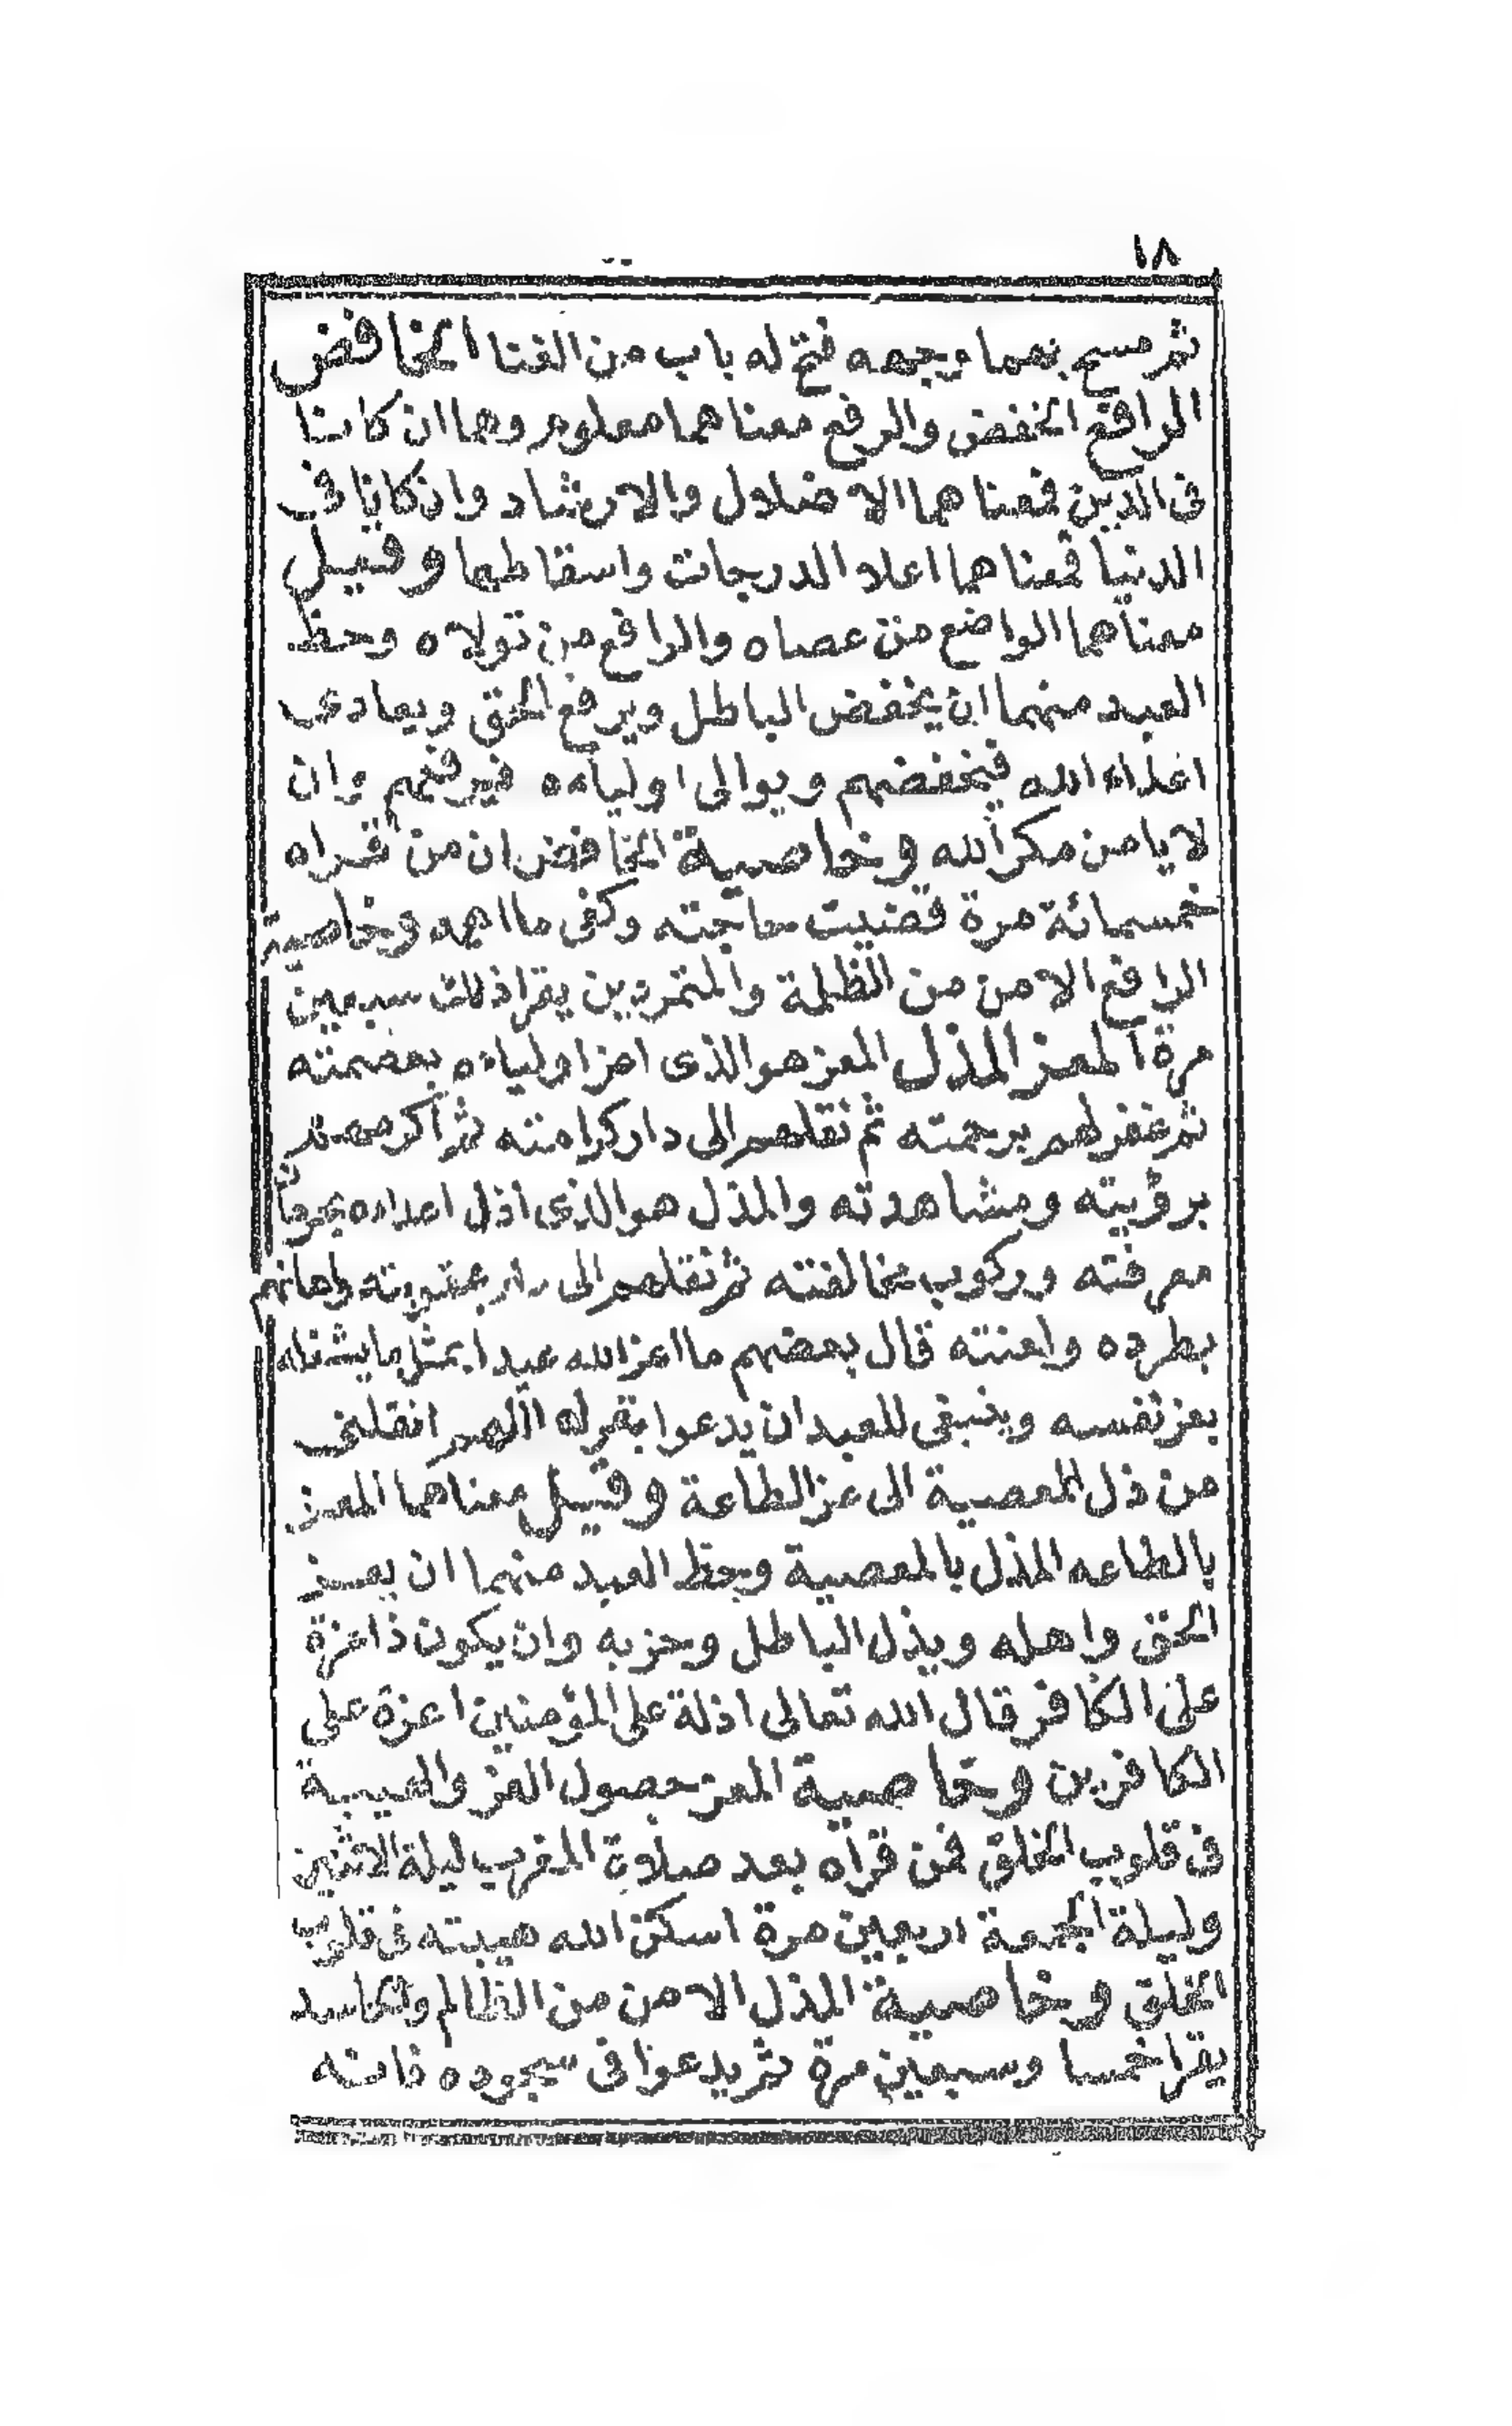 ١٨
ثم مسح بهما وجهه فتح له باب من الغنا الخافض
الرافع الخفض والرفع معناهما معلوم وهما ان كانا
فى الدين فمعناهما الاضلال والارشاد وان كانا فى
الدنيا فمعناهما اعلا الدرجات واسقاطها وقيل
معناهما الواضع من عصاه والرافع من تولاه وحظ
العبد منهما ان يخفض الباطل ويرفع الحق ويعادى
اعداء الله فيخفضهم ويوالى اولياءه فيرفعهم وان
لا يامن مكر الله وخاصية الخافض ان من قراه
خمسمائة مرة قضيت حاجته وكفى ما اهمه وخاصية
الرافع الامن من الظلمة والمتمردين يقرا ذلك سبعين
مرة المعز المذل المعز هو الذى اعز اولياءه بعصمته
ثم غفر لهم برحمته ثم نقلهم الى دار كرامته ثم اكرمهم
برؤيته ومشاهدته والمذل هو الذى اذل اعداءه بحرمان
معرفته وركوب مخالفته ثم نقلهم الى دار عقوبته واهانهم
بطرده ولعنته قال بعضهم ما اعز الله عبدا بمثل ما يشغله
بعز نفسه وينبغى للعبد ان يدعوا بقوله اللهم انقلنى
من ذل المعصية الى عز الطاعة وقيل معناهما المعز
بالطاعه المذل بالمعصية وحظ العبد منهما ان يعز
الحق واهله ويذل الباطل وحزبه وان يكون ذا عزة
على الكافر قال الله تعالى اذلة على المؤمنين اعزة على
الكافرين وخاصية المعز حصول العز والهيبة
فى قلوب الخلق فمن قرأه بعد صلاة المغرب ليلة الاثنين
وليلة الجمعة اربعين مرة اسكن الله هيبته فى قلوب
الخلق وخاصية المذل الامن من الظالم والحاسد
يقرا خمسا وسبعين مرة ثم يدعوا فى سجوده فانه